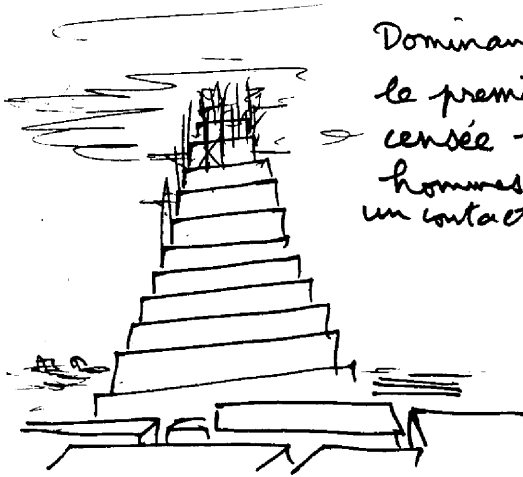 Dominan
le premi
censée
hommes
un contact